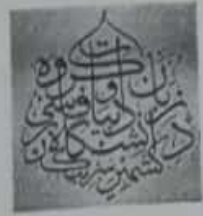 گروه
زبان و ادبیات فارسی
دانشگاه
کشمیر سرینگر